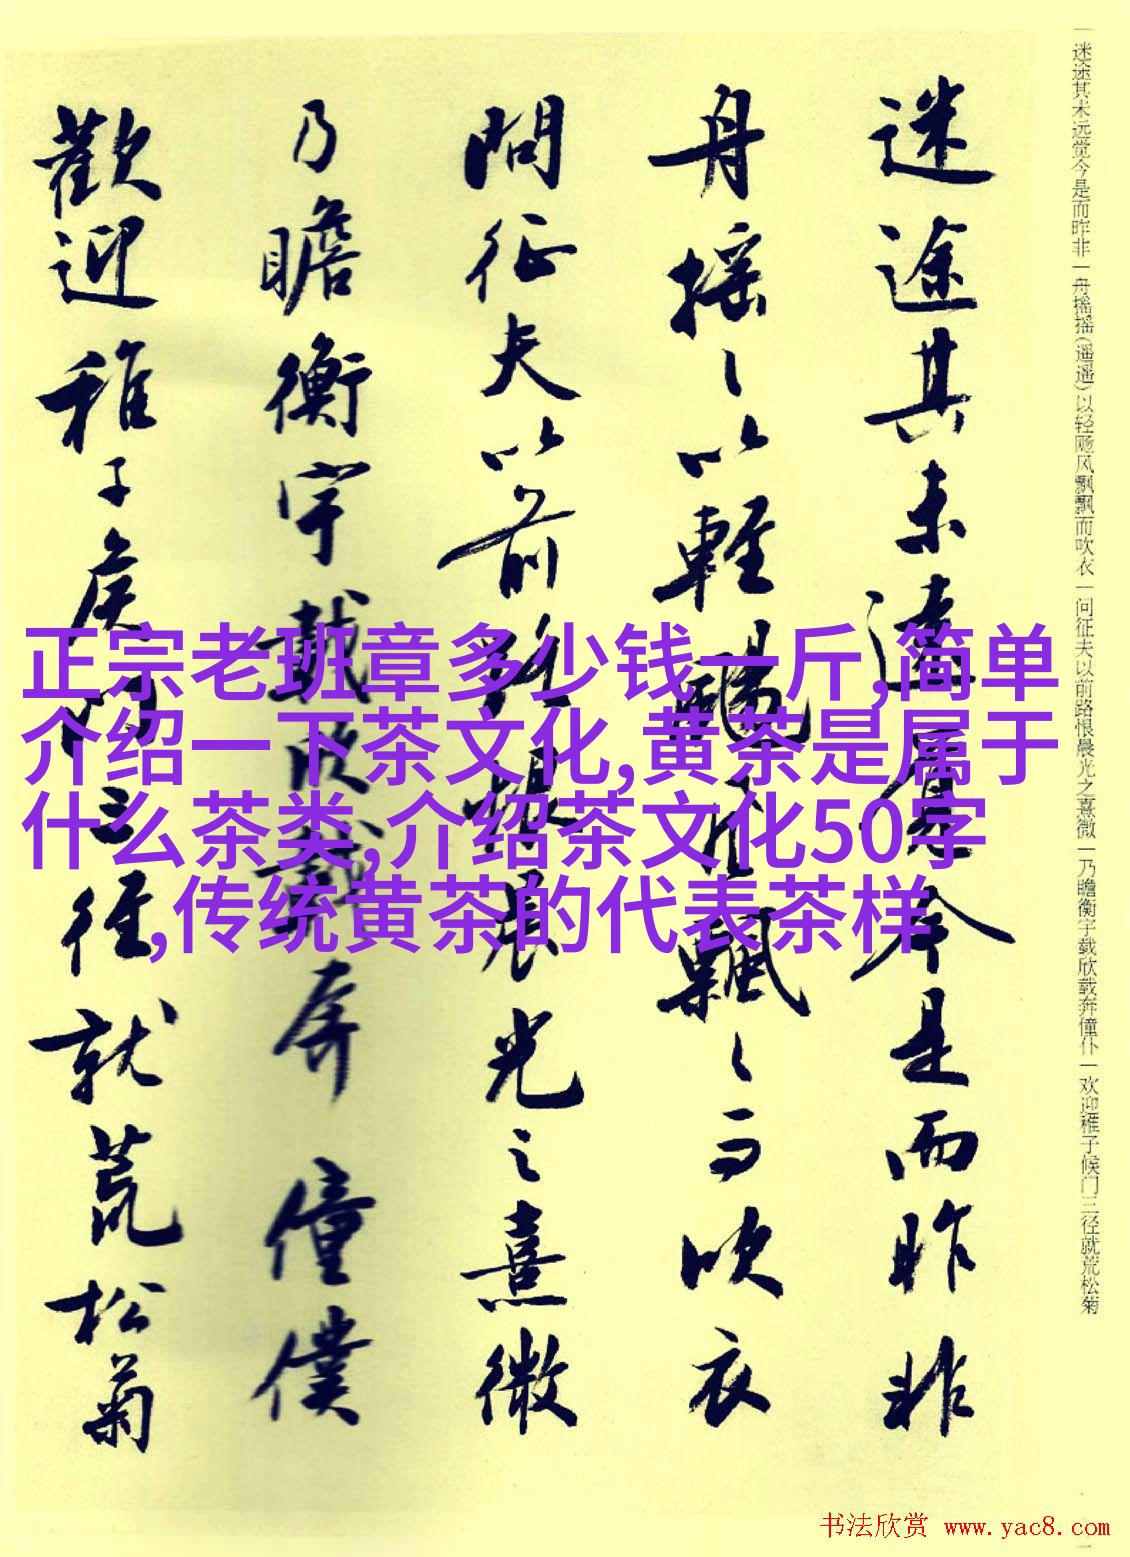 一迷途其未远觉今是而昨非一舟摇摇(遥遥)以轻飏风飘飘而吹衣一问征夫以前路恨晨光之熹微一乃瞻衡宇载欣载奔僮仆一欢迎稚子候门三径就荒松菊
迷途其未遠覺今是而昨非
舟摇〻以輕颺風飄〻而吹衣
問征夫以前路恨晨光之熹微
乃瞻衡宇載欣載奔僮僕
歡迎稚子侯門三徑就荒松菊
正宗老班章多少钱一斤,简单
介绍一下茶文化,黄茶是属于
什么茶类,介绍茶文化50字
,传统黄茶的代表茶样
书法欣赏 www.yac8.com